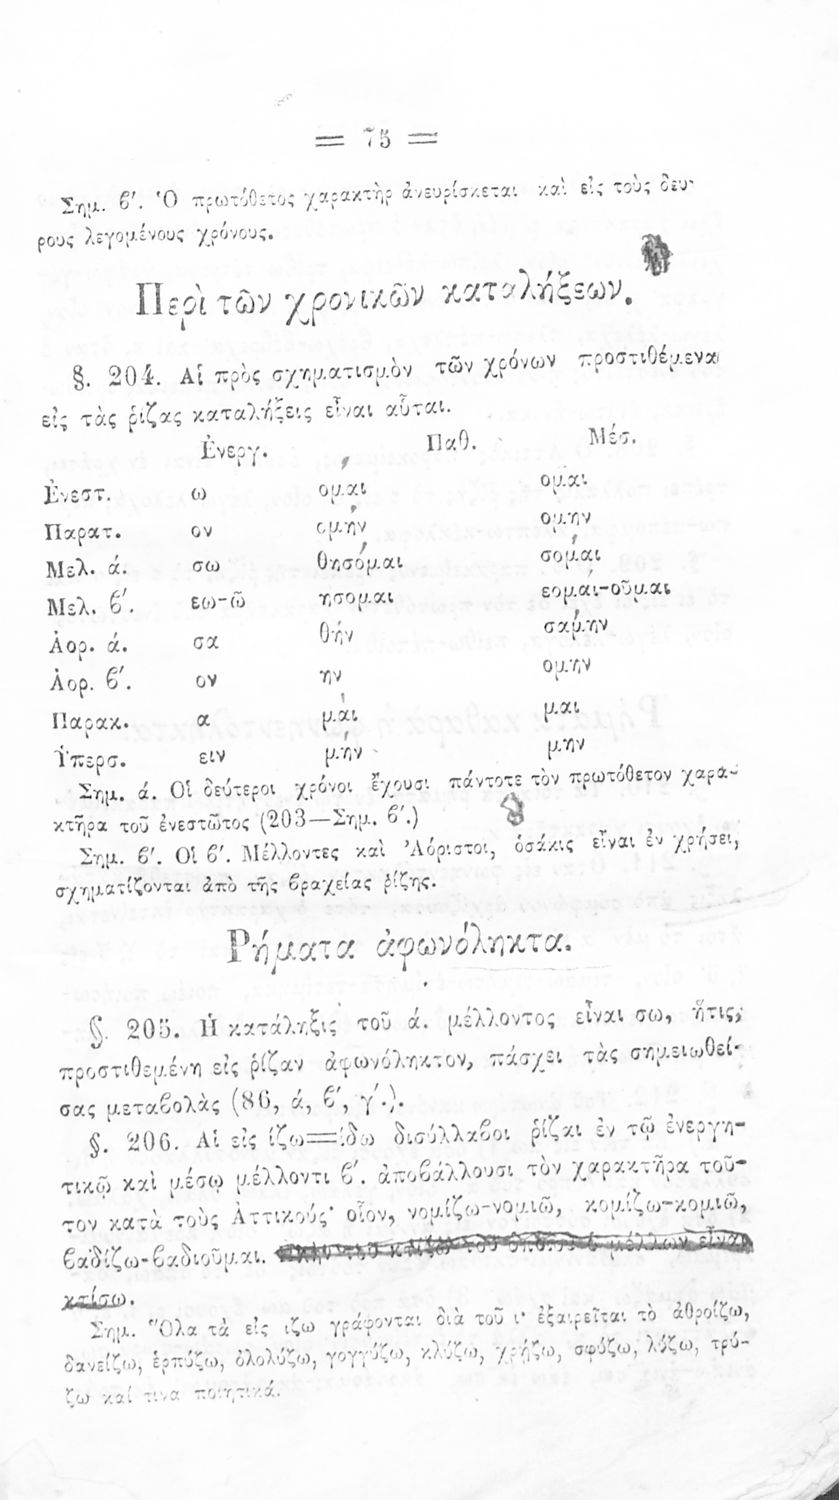 = 75 =
Σημ. β'. Ὁ πρωτόθετος χαρακτὴρ ἀνευρίσκεται καὶ εἰς τοὺς δευ-
ρους λεγομένους χρόνους.
Περὶ τῶν χρονικῶν καταλήξεων.
§. 204. Αἱ πρὸς σχηματισμὸν τῶν χρόνων προστιθέμενα
εἰς τὰς ῥίζας καταλήξεις εἶναι αὗται.
Ἐνεργ. Παθ. Μέσ.
Ἐνεστ. ω ομαι ομαι
Παρατ. ον ομήν ομην
Μελ. ά. σω θησόμαι σομαι
Μελ. β'. εω-ῶ ησομαι εομαι-οῦμαι
Ἀορ. ά. σα θήν σαμην
Ἀορ. β'. ον ην ομην
Παρακ. α μαι μαι
Ὑπερσ. ειν μην μην
Σημ. ά. Οἱ δεύτεροι χρόνοι ἔχουσι πάντοτε τὸν πρωτόθετον χαρα-
κτῆρα τοῦ ἐνεστῶτος (203—Σημ. β'.)
Σημ. β'. Οἱ β'. Μέλλοντες καὶ Ἀόριστοι, ὁσάκις εἶναι ἐν χρήσει,
σχηματίζονται ἀπὸ τῆς βραχείας ῥίζης.
Ρήματα ἀφωνόληκτα.
§. 205. Ἡ κατάληξις τοῦ ά. μέλλοντος εἶναι σω, ἥτις,
προστιθεμένη εἰς ῥίζαν ἀφωνόληκτον, πάσχει τὰς σημειωθεί-
σας μεταβολὰς (86, ά, β', γ'.).
§. 206. Αἱ εἰς ίζω=ίδω δισύλλαβοι ῥίζαι ἐν τῷ ἐνεργη-
τικῷ καὶ μέσῳ μέλλοντι β'. ἀποβάλλουσι τὸν χαρακτῆρα τοῦ-
τον κατὰ τοὺς Ἀττικούς· οἷον, νομίζω-νομιῶ, κομίζω-κομιῶ,
βαδίζω-βαδιοῦμαι. τοῦ κτίζω τοῦ ὁποίου ὁ μέλλων εἶναι
κτίσω.
Σημ. Ὅλα τὰ εἰς ιζω γράφονται διὰ τοῦ ι· ἐξαιρεῖται τὸ ἀθροίζω,
δανείζω, ἑρπύζω, ὀλολύζω, γογγύζω, κλύζω, χρήζω, σφύζω, λύζω, τρύ-
ζω καί τινα ποιητικά.